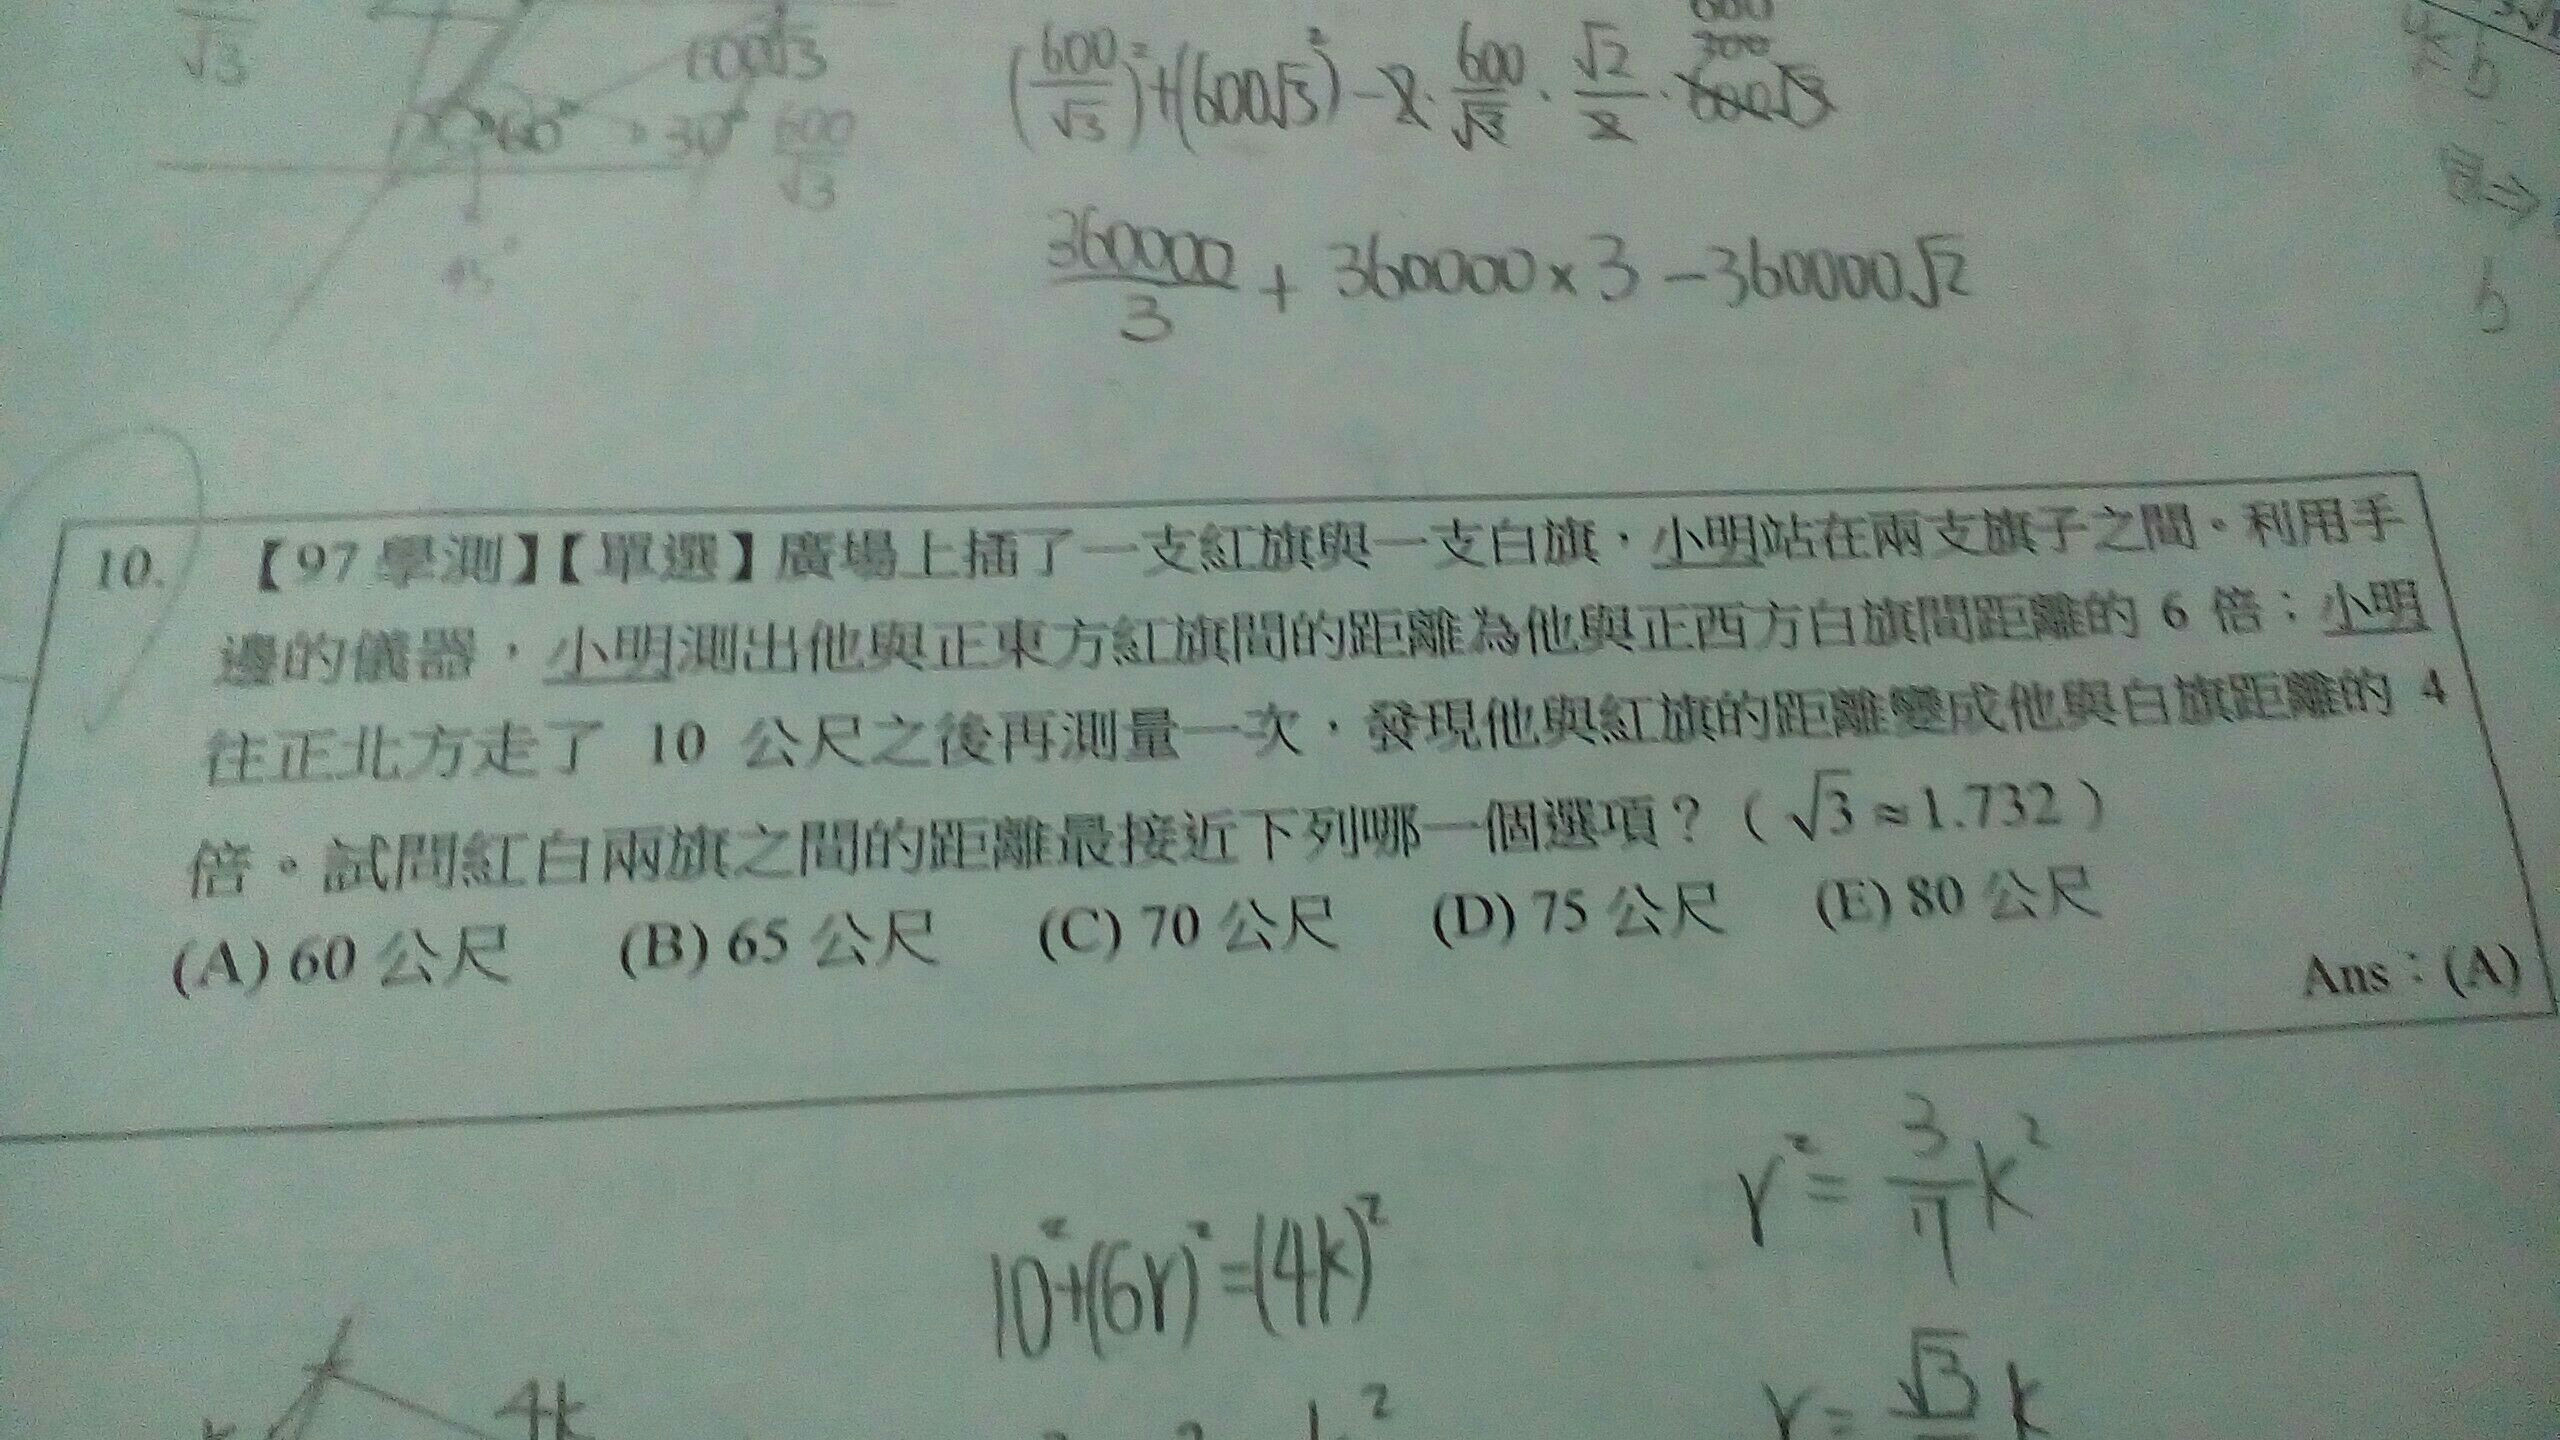 √3
600√3
60°
30°
600/√3
45°
(600/√3)²+(600√3)²-2·600/√3·√2/2·600√3
300
360000/3 + 360000×3-360000√2
b
10. 【97 學測】【單選】廣場上插了一支紅旗與一支白旗，小明站在兩支旗子之間。利用手
邊的儀器，小明測出他與正東方紅旗間的距離為他與正西方白旗間距離的 6 倍；小明
往正北方走了 10 公尺之後再測量一次，發現他與紅旗的距離變成他與白旗距離的 4
倍。試問紅白兩旗之間的距離最接近下列哪一個選項？（√3≈1.732）
(A) 60 公尺 (B) 65 公尺 (C) 70 公尺 (D) 75 公尺 (E) 80 公尺
Ans：(A)
r²=3/7k²
10²+(6r)²=(4k)²
4k